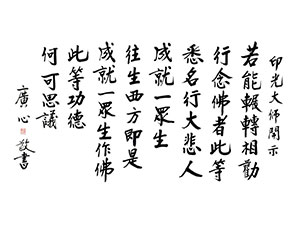 印光大師開示
若能輾轉相勸
行念佛者此等
悉名行大悲人
成就一眾生
往生西方即是
成就一眾生作佛
此等功德
何可思議
廣心敬書